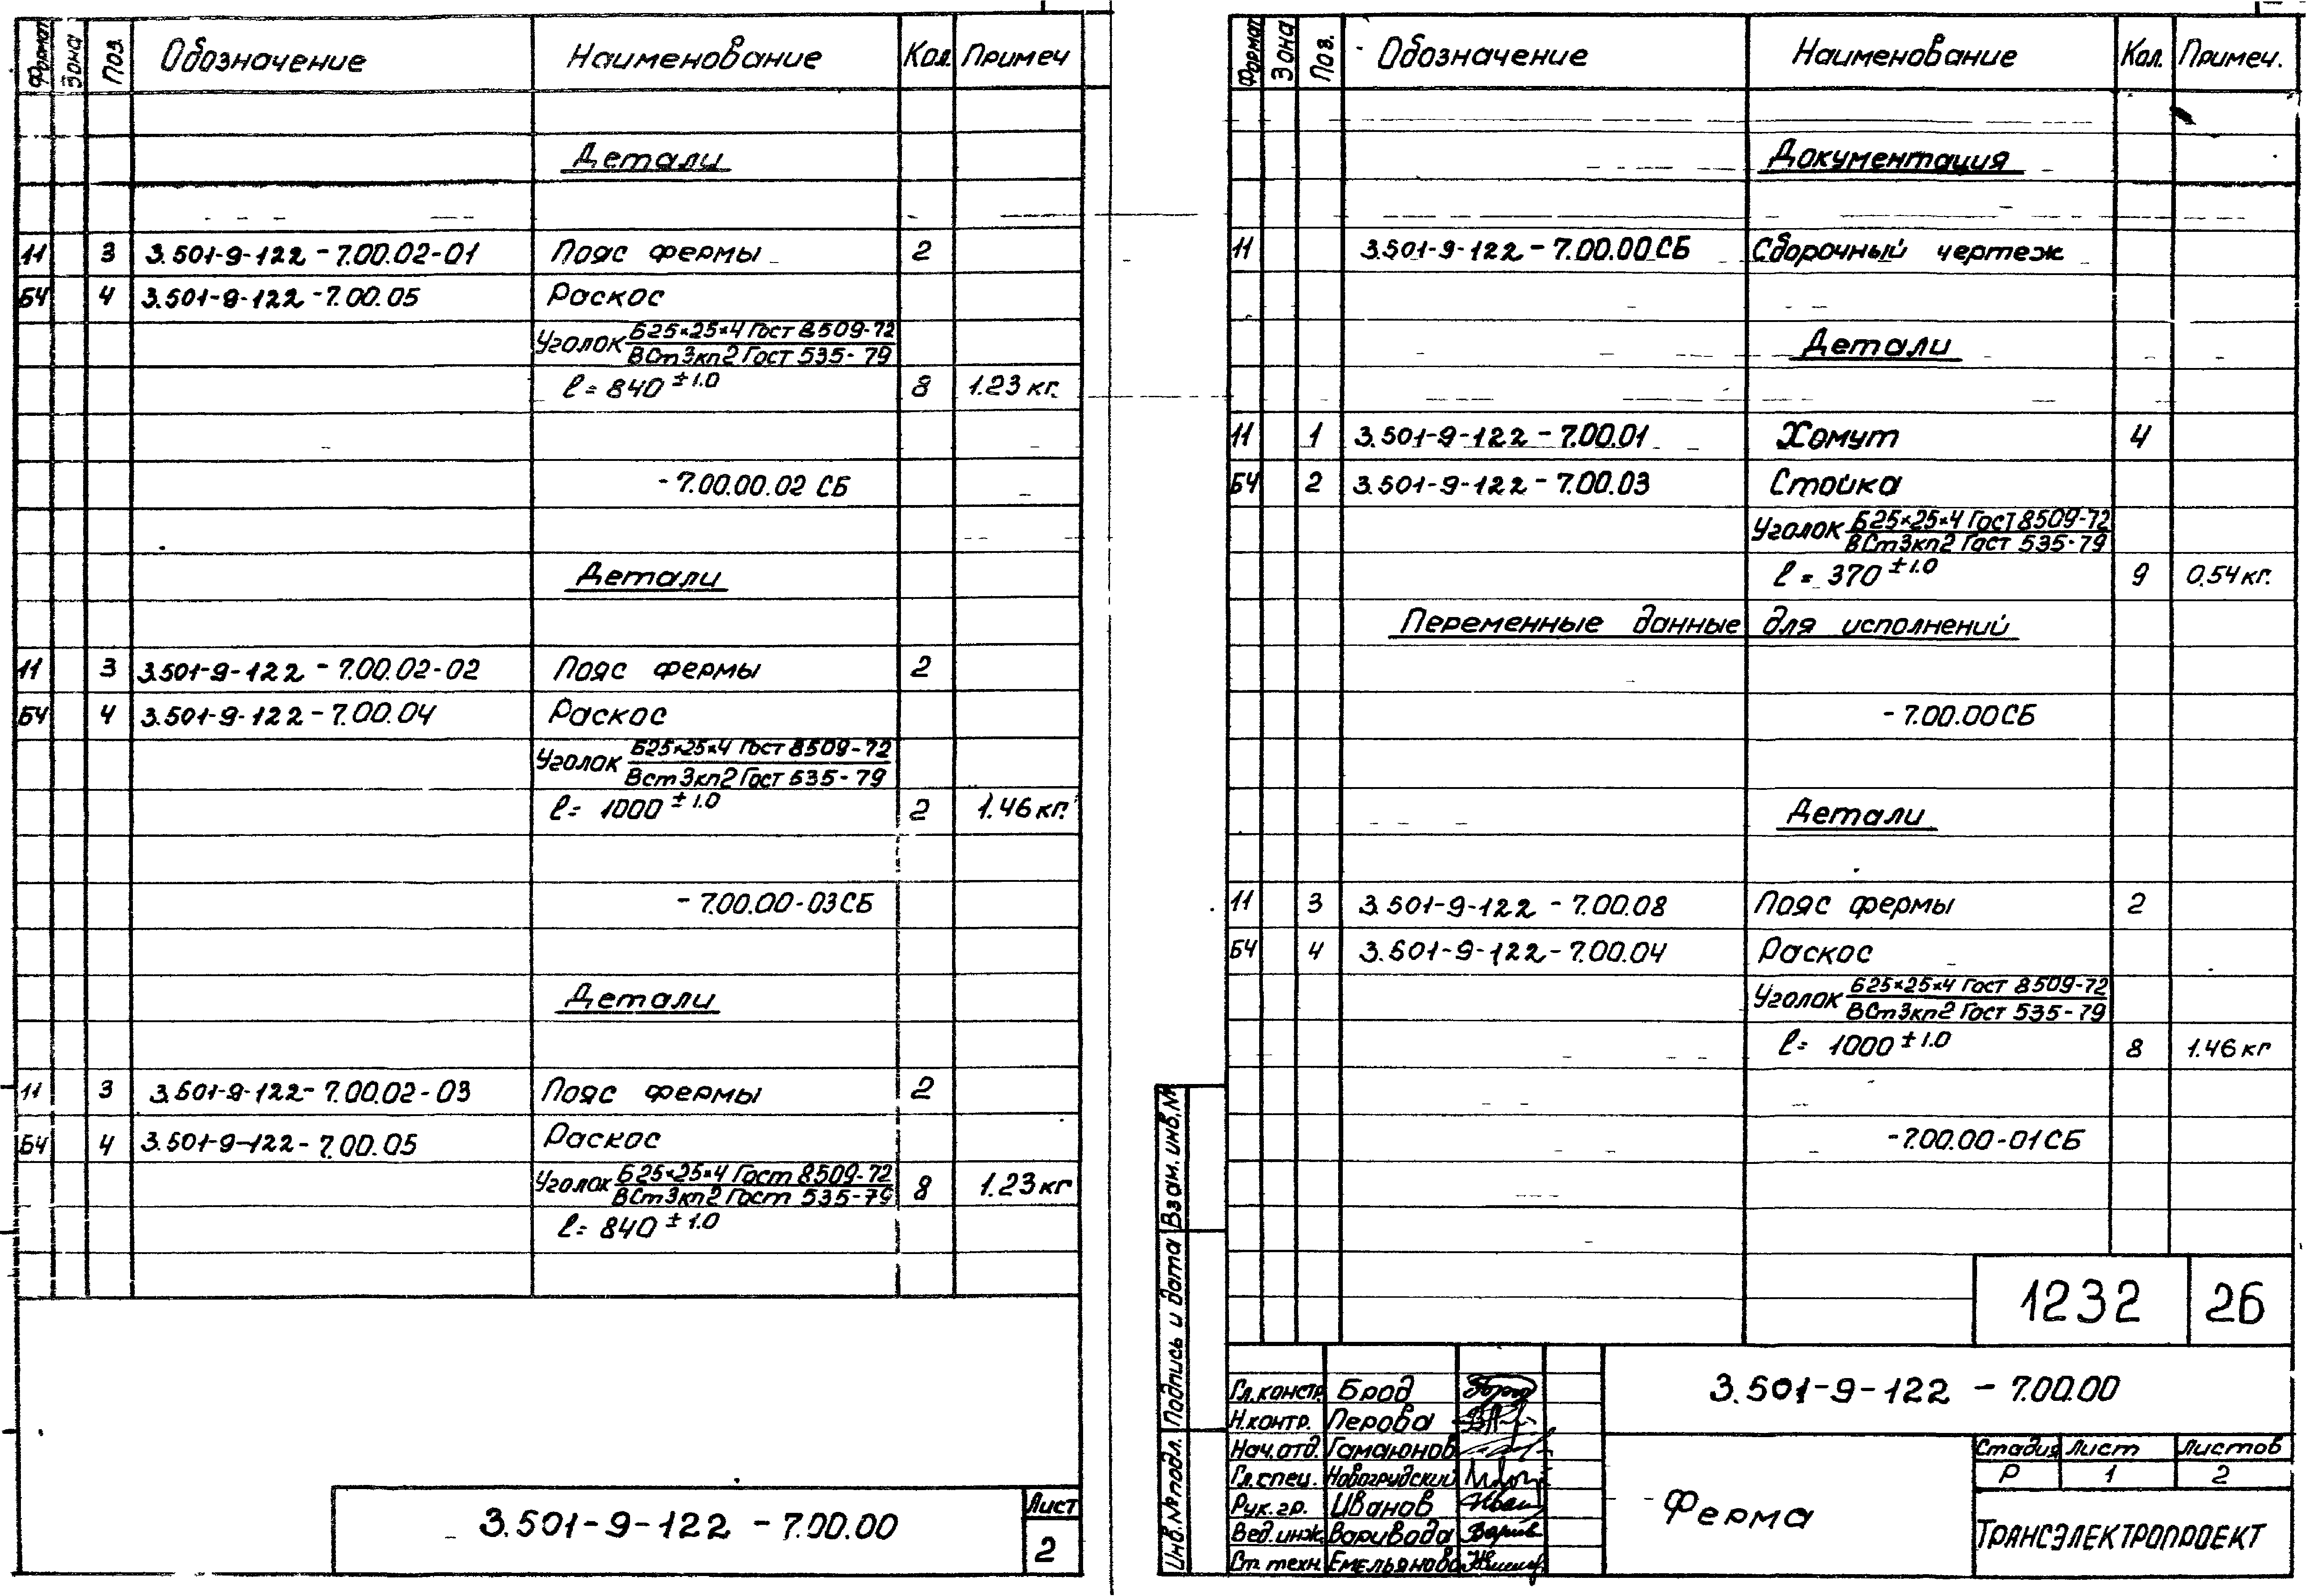 Формат Зона Поз. Обозначение Наименование Кол. Примеч
Детали
11 3 3.501-9-122-7.00.02-01 Пояс фермы 2
БЧ 4 3.501-9-122-7.00.05 Раскос
Уголок Б25×25×4 Гост 8509-72
ВСт3кп2 Гост 535-79
ℓ= 840 ±1.0 8 1.23 кг.
-7.00.00.02 СБ
Детали
11 3 3.501-9-122-7.00.02-02 Пояс фермы 2
БЧ 4 3.501-9-122-7.00.04 Раскос
Уголок Б25×25×4 Гост 8509-72
Вст3кп2 Гост 535-79
ℓ= 1000 ±1.0 2 1.46 кг.
-7.00.00-03СБ
Детали
11 3 3.501-9-122-7.00.02-03 Пояс фермы 2
БЧ 4 3.501-9-122-7.00.05 Раскос
Уголок Б25×25×4 Гост 8509-72 8 1.23 кг
ВСт3кп2 Гост 535-79
ℓ= 840 ±1.0
3.501-9-122-7.00.00
Лист
2
Формат Зона Поз. Обозначение Наименование Кол. Примеч.
Документация
11 3.501-9-122-7.00.00СБ Сборочный чертеж
Детали
11 1 3.501-9-122-7.00.01 Хомут 4
БЧ 2 3.501-9-122-7.00.03 Стойка
Уголок Б25×25×4 Гост 8509-72
ВСт3кп2 Гост 535-79
ℓ= 370 ±1.0 9 0.54 кг.
Переменные данные для исполнений
-7.00.00СБ
Детали
11 3 3.501-9-122-7.00.08 Пояс фермы 2
БЧ 4 3.501-9-122-7.00.04 Раскос
Уголок Б25×25×4 Гост 8509-72
ВСт3кп2 Гост 535-79
ℓ= 1000 ±1.0 8 1.46 кг
-7.00.00-01СБ
1232 26
Взам. инв.№
Подпись и дата
Инв.№ подл.
Гл.констр. Брод
Н.контр. Перова
Нач.отд. Гамаюнов
Гл.спец. Новогрудский
Рук.гр. Иванов
Вед.инж. Варивода
Ст.техн. Емельянова
3.501-9-122-7.00.00
Ферма
Стадия Лист Листов
Р 1 2
ТРАНСЭЛЕКТРОПРОЕКТ